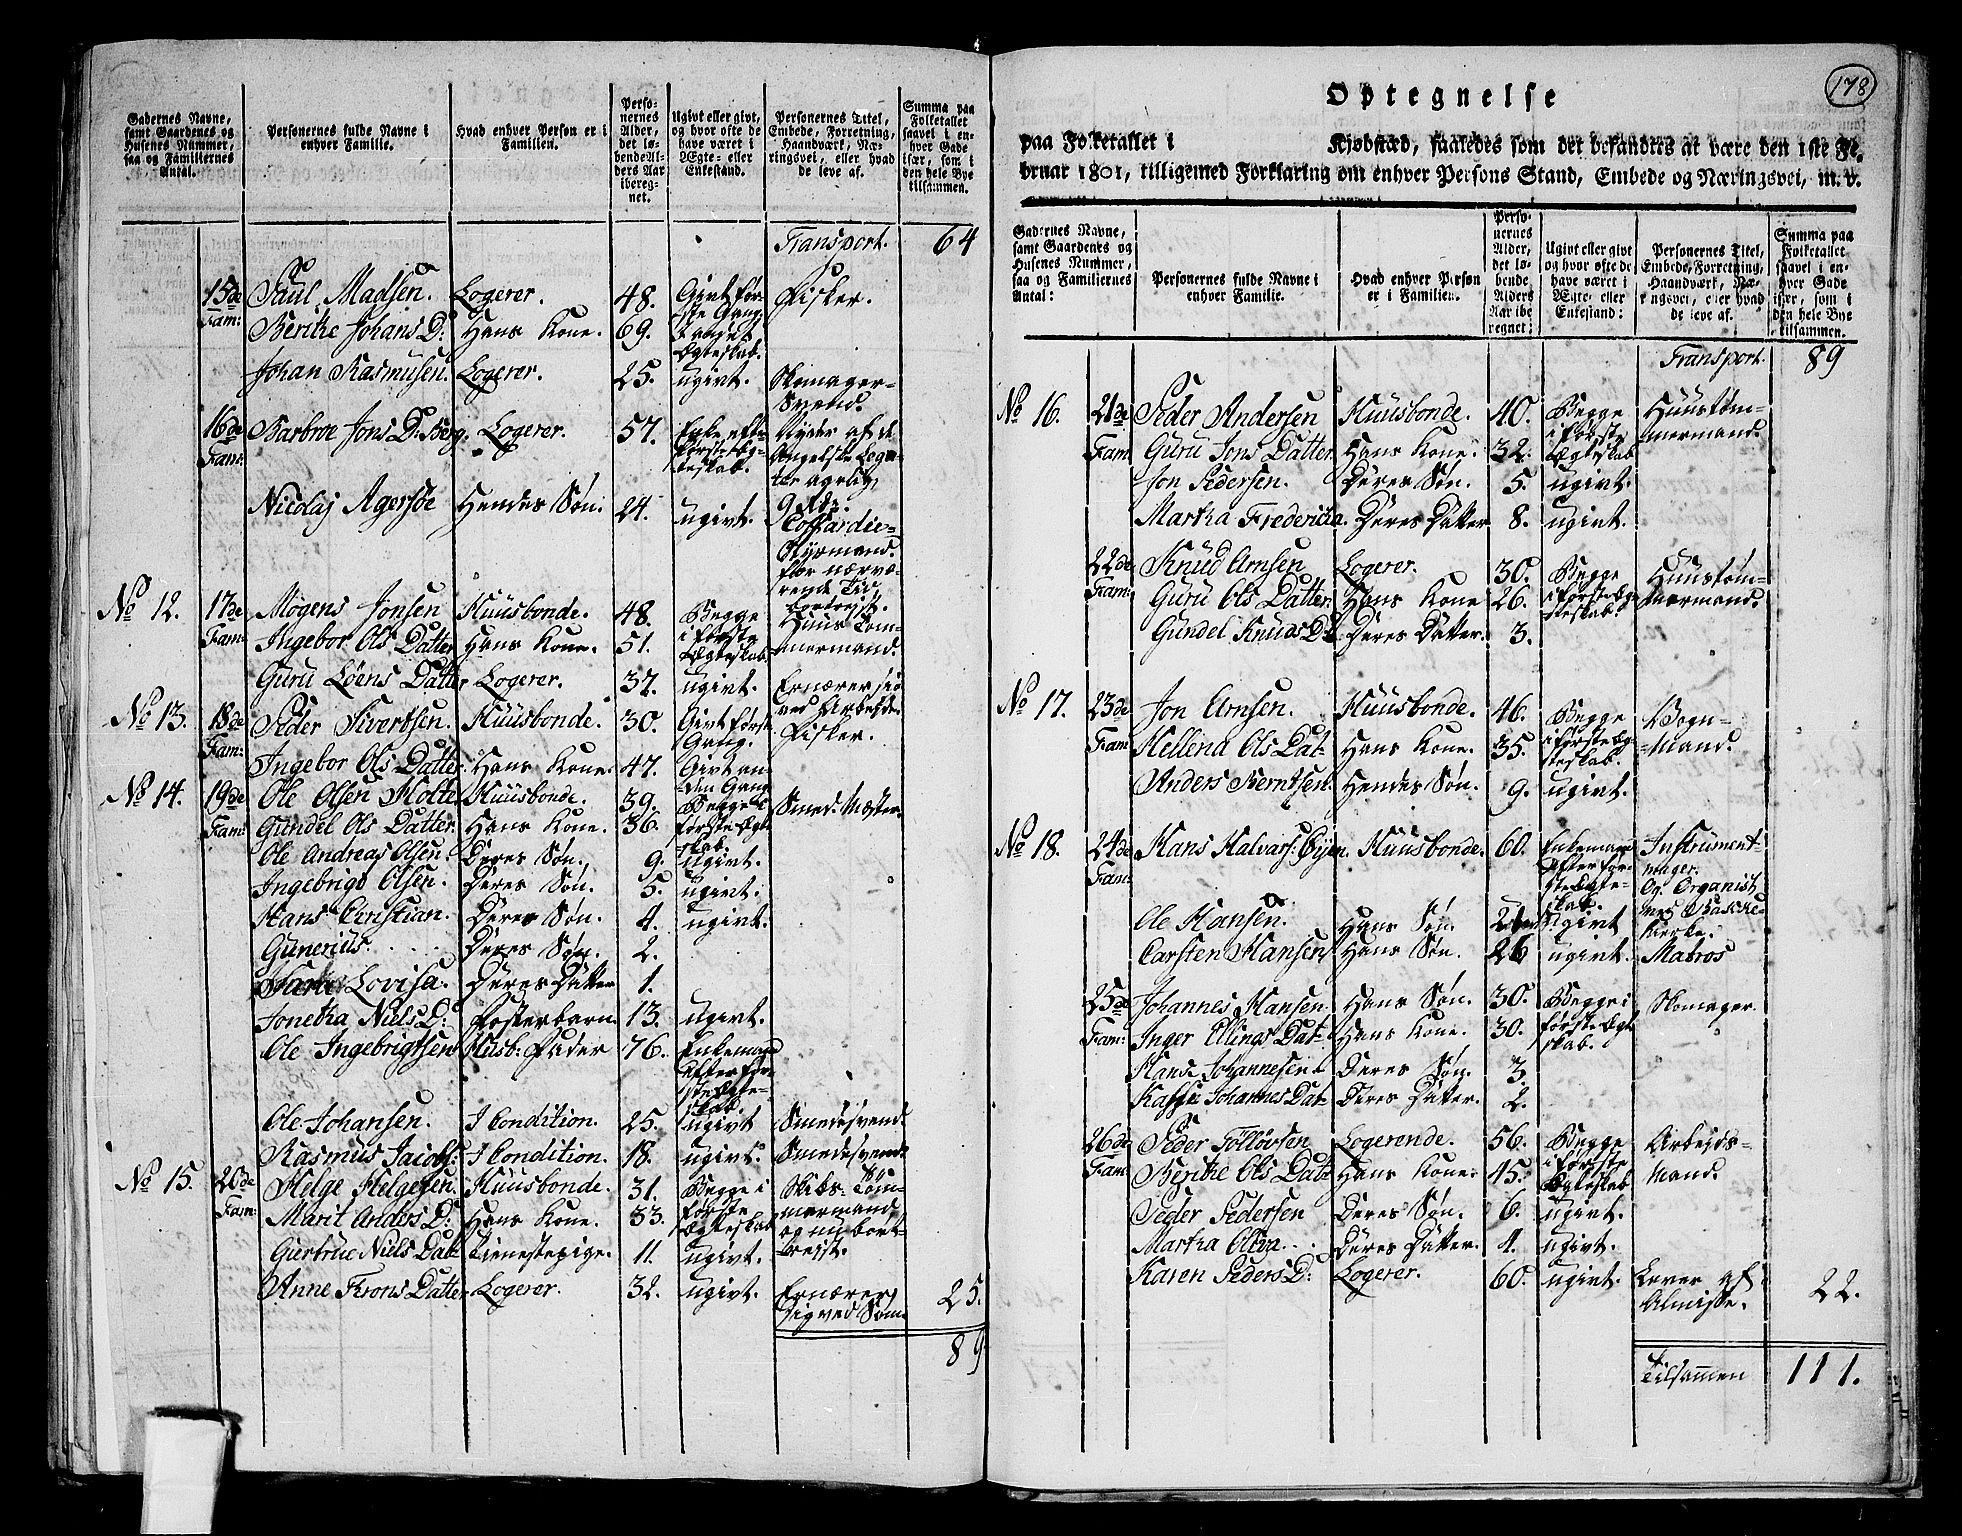 Gadernes Navne, samt Gaardenes og Husenes Nummer, saa og Familiernes Antal.
Personernes fulde Navne i enhver Familie.
Hvad enhver Person er i Familien.
Personernes Alder, det løbende Alders Aar iberegnet.
Ugivt eller givt, og hvor ofte de have været i Ægte- eller Enkestand.
Personernes Titel, Embede, Forretning, Haandværk, Næringsvei, eller hvad de leve af.
Summa paa Folketallet saavel i enhver Gade især, som i den hele Bye tilsammen.
Transport. 64
15de Fam: Paul Madsen. Logerer. 48. Givt første Gang Fisker.
Berithe Johans D: Hans Kone. 69. Andet Ægteskab.
Johan Rasmusen. Logerer. 25. ugivt. Skomager-Svend.
16de Fam: Barbroe Jons D: Berg. Logerer. 57. Enke efter første Ægteskab. Nyder af de Angelske
Nicolaj Agersøe Hendes Søn. 24. ugivt. Coffardie-Styrmand. for nærværende Tiid bortreist.
No 12. 17de Fam: Mogens Jonsen Huusbonde. 48. Begge i første Ægteskab. Huus Tømmermand.
Ingebor Ols Datter Hans Kone. 51.
Guru Løens Datter Logerer. 37. ugivt. Ernærer sig ved Arbejde.
No 13. 18de Fam: Peder Sivertsen. Huusbonde. 30. Givt første Gang. Fisker.
Ingebor Ols Datter. Hans Kone. 47. Givt anden Gang
No 14. 19de Fam: Ole Olsen Holte Huusbonde. 39. Begge i første Ægteskab. Smed-Mæster.
Gundel Ols Datter. Hans Kone. 36.
Ole Andreas Olsen. Deres Søn. 9. ugivt.
Ingebrigt Olsen. Deres Søn. 5. ugivt.
Hans Christian. Deres Søn. 4. ugivt.
Gunerius. Deres Søn. 2.
Lovisa. Deres Datter 1.
Jonetha Niels D: Fosterbarn. 13. ugivt.
Ole Ingebrigtsen Husb: Fader 76. Enkemand Efter første Ægteskab.
Ole Johansen. I Condition. 25. ugivt Smedesvend.
Rasmus Jacobs: I Condition. 18. ugivt. Smedesvend.
No 15. 20de Fam: Helge Helgesen. Huusbonde. 31. Begge i første Ægteskab Skibs-Tømmermand og nu bortreist.
Marit Anders D: Hans Kone. 33.
Giertrue Niels Dat: Tienestepige. 11. ugivt.
Anne Trons Datter Logerer. 32. ugivt. Ernærer sig ved Søm. 25.
89
178
Optegnelse
paa Folketallet i Kjøbstæd, saaledes som det befandtes at være den 1ste Fe-
bruar 1801, tilligemed Forklaring om enhver Persons Stand, Embede og Næringsvei, m. v.
Gadernes Navne, samt Gaardenes og Husenes Nummer, saa og Familiernes Antal:
Personernes fulde Navne i enhver Familie.
Hvad enhver Person er i Familien.
Personernes Alder, det løbende Alders Aar iberegnet:
Ugivt eller givt og hvor ofte de have været i Ægte- eller Enkestand:
Personernes Titel, Embede, Forretning, Haandværk, Næringsvei, eller hvad de leve af.
Summa paa Folketallet saavel i enhver Gade især, som i den hele Bye tilsammen.
Transport. 89
No 16. 21de Fam: Peder Andersen Huusbonde. 40. Begge i første Ægteskab Huustømmermand.
Guru Jons Datter Hans Kone. 32.
Jon Pedersen. Deres Søn. 5. ugivt.
Martha Fredericka. Deres Datter 8. ugivt.
22de Fam: Knud Arnsen Logerer. 30. Begge i første Ægteskab. Huustømmermand.
Guru Ols Datter. Hans Kone 26.
Gundel Knuds D: Deres Datter. 3.
No 17. 23de Fam: Jon Arnsen. Huusbonde. 46. Begge i første Ægteskab. Vognmand.
Hellena Ols Dat- Hans Kone. 35.
Anders Berntsen. Hendes Søn. 9. ugivt.
No 18. 24de Fam: Hans Halvars: Øijen. Huusbonde. 60. Enkemand Efter første Ægteskab. Instrumentmager. Og Organist
Ole Hansen. Hans Søn. ugivt
Carsten Hansen Hans Søn. 26 ugivt. Matros
25de Fam: Johannes Hansen. Hans Søn. 30. Begge i første Ægteskab. Skomager.
Inger Ellings Dat- Hans Kone. 30.
Hans Johannesen. Deres Søn. 3.
Johannes Dat- Deres Datter. 2.
26de Fam: Peder Tolløvsen Logerende. 56. Begge i første Ægteskab Arbeids-Mand.
Berithe Ols Dat: Hans Kone. 45.
Peder Pedersen Deres Søn. 6. ugivt.
Martha Oliva. Deres Datter. 4. ugivt.
Karen Peders D: Logerer. 60. ugivt. Lever af Almisse. 22.
Tilsammen 111.